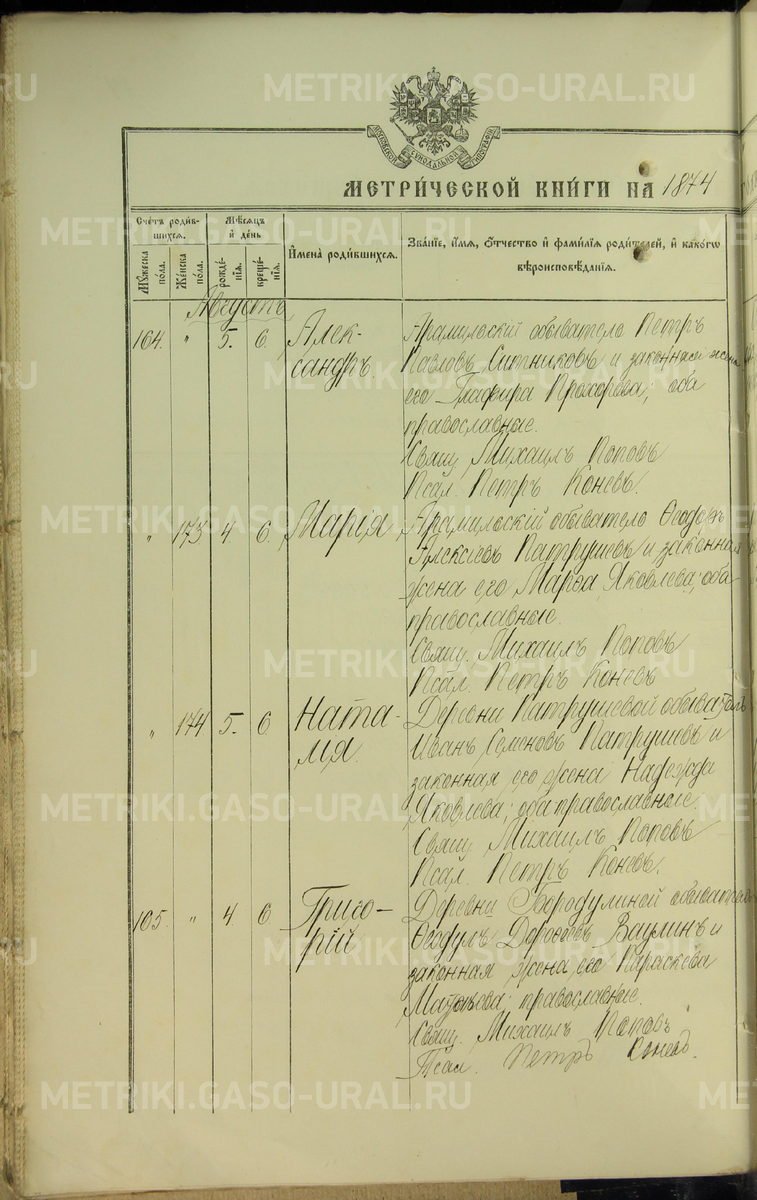 METRIKI.GASO-URAL.RU
МОСКОВСКОЙ СѴНОДАЛЬНОЙ ТИПОГРАФІИ
МЕТРИ́ЧЕСКОЙ КНИ́ГИ НА 1874
Сче́тъ роди́вшихся.
Му́жеска по́ла.
Же́нска по́ла.
Мѣ́сяцъ и де́нь
рожде́нїя.
креще́нїя.
Имена̀ роди́вшихся.
Зва́нїе, и́мя, ѻ́тчество и фами́лїя роди́телей, и како́гѡ вѣроисповѣ́данїя.
Августъ
164. " 5. 6 Александръ.
Арамильский обыватель Петръ
Павловъ Ситниковъ и законная жена
его Глафира Прохорова; оба
православные.
Свящ. Михаилъ Поповъ
Псал. Петръ Коневъ.
" 173 4 6 Марія
Арамильский обыватель Ѳеодоръ
Алексѣевъ Патрушевъ и законная
жена его Марѳа Яковлева; оба
православные.
Свящ. Михаилъ Поповъ
Псал. Петръ Коневъ
" 174 5. 6 Наталія.
Деревни Патрушевой обыватель
Иванъ Семеновъ Патрушевъ и
законная его жена Надежда
Яковлева; оба православные.
Свящ. Михаилъ Поповъ
Псал. Петръ Коневъ.
165. " 4 6 Григорій
Деревни Бородулиной обыватель
Ѳеодулъ Дороѳеевъ Ваулинъ и
законная жена его Параскева
Матѳеева; православные.
Свящ. Михаилъ Поповъ
Псал. Петръ Коневъ.